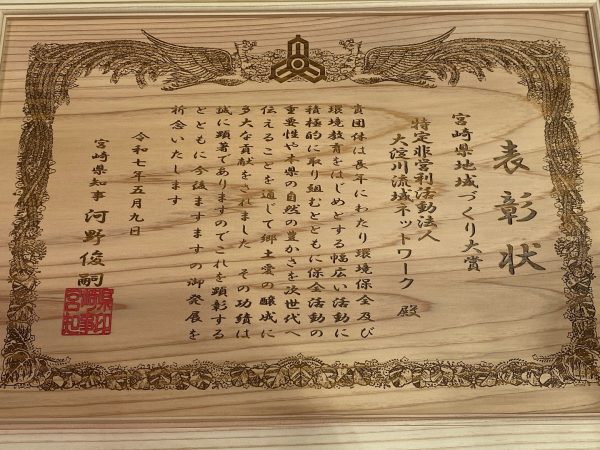 表彰状
宮崎県地域づくり大賞
特定非営利活動法人
大淀川流域ネットワーク 殿
貴団体は長年にわたり環境保全及び
環境教育をはじめとする幅広い活動に
積極的に取り組むとともに保全活動の
重要性や本県の自然の豊かさを次世代へ
伝えることを通じて郷土愛の醸成に
多大な貢献をされました その功績は
誠に顕著でありますのでこれを顕彰する
とともに今後ますますの御発展を
祈念いたします
令和七年五月九日
宮崎県知事 河野俊嗣
宮崎県知事印